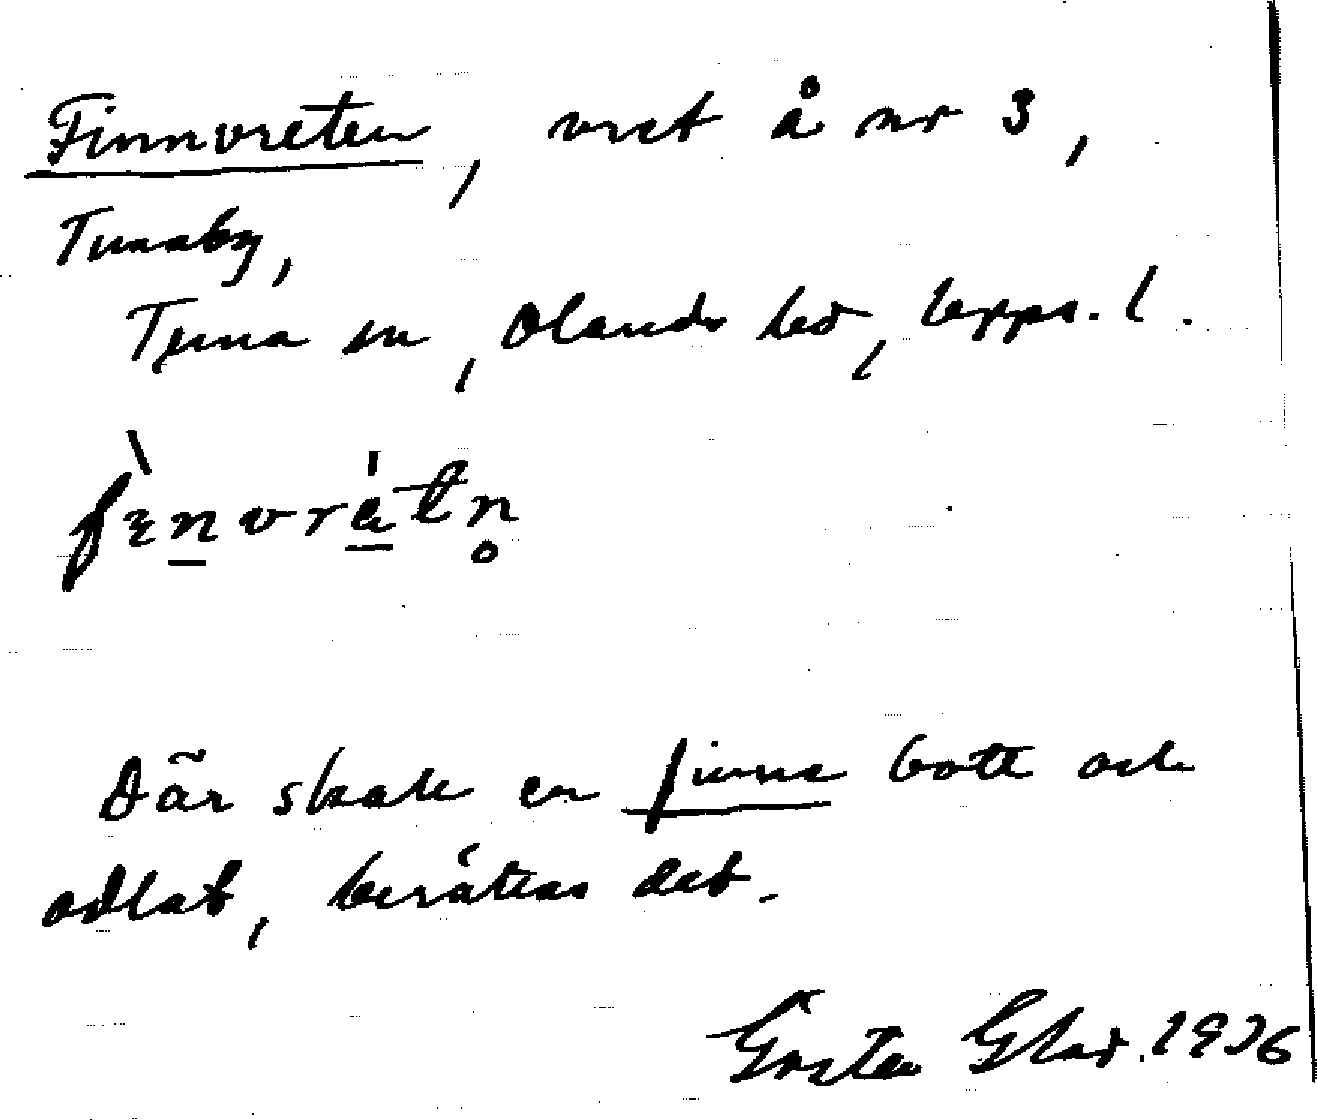 Finnvreten, vret å nr 3,
Tunaby,
Tuna sn, Olands hd, Upps. l.
fɛnvrätn̥
Där skall en finne bott och
odlat, berättas det.
Gösta Glad. 1936